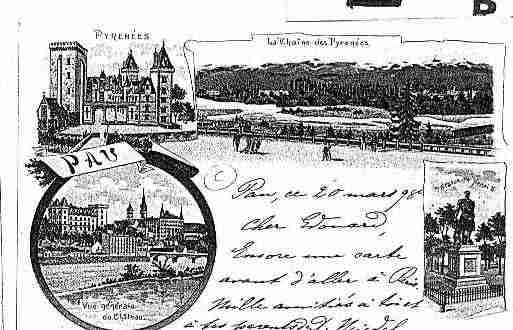 B
PYRENÉES
La Chaîne des Pyrenées.
PAU
C
Vue générale
du Château.
Pau, ce 20 mars 98
Cher Edouard,
Encore une carte
avant d'aller à
Mille amitiés à toi et
à tes parents